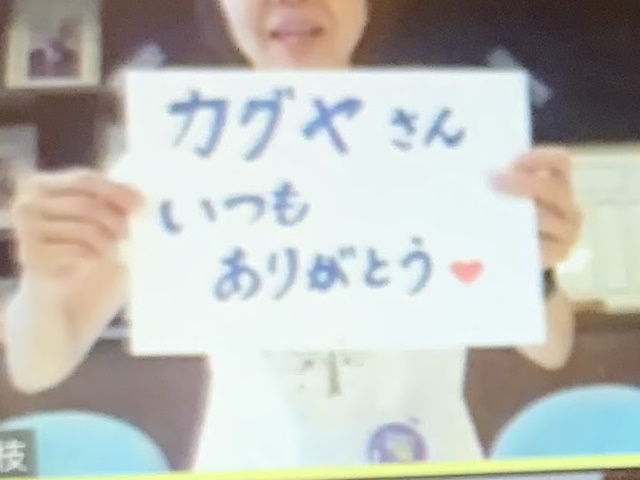 カグヤさん
いつも
ありがとう♥
枝